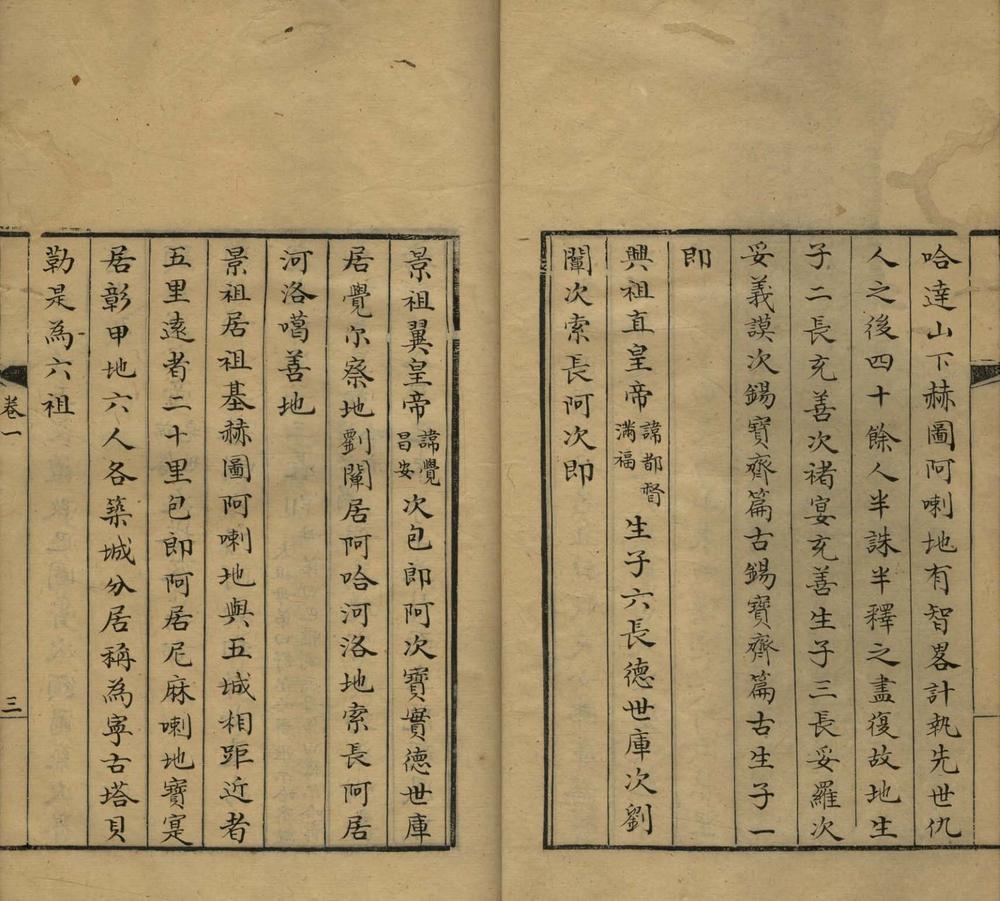 哈達山下赫圖阿喇地有智畧計執先世仇
人之後四十餘人半誅半釋之盡復故地生
子二長充善次褚宴充善生子三長妥羅次
妥義謨次錫寶齊篇古錫寶齊篇古生子一
即
興祖直皇帝諱都督滿福生子六長德世庫次劉
闡次索長阿次即
景祖翼皇帝諱覺昌安次包郎阿次寶實德世庫
居覺尔察地劉闡居阿哈河洛地索長阿居
河洛噶善地
景祖居祖基赫圖阿喇地與五城相距近者
五里遠者二十里包郎阿居尼麻喇地寶寔
居彰甲地六人各築城分居稱為寧古塔貝
勒是為六祖
卷一
三